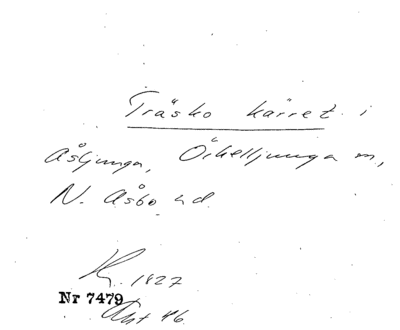 Träsko kärret i
Åsljunga, Örkelljunga m,
N. Åsbo hd
1827
Nr 7479